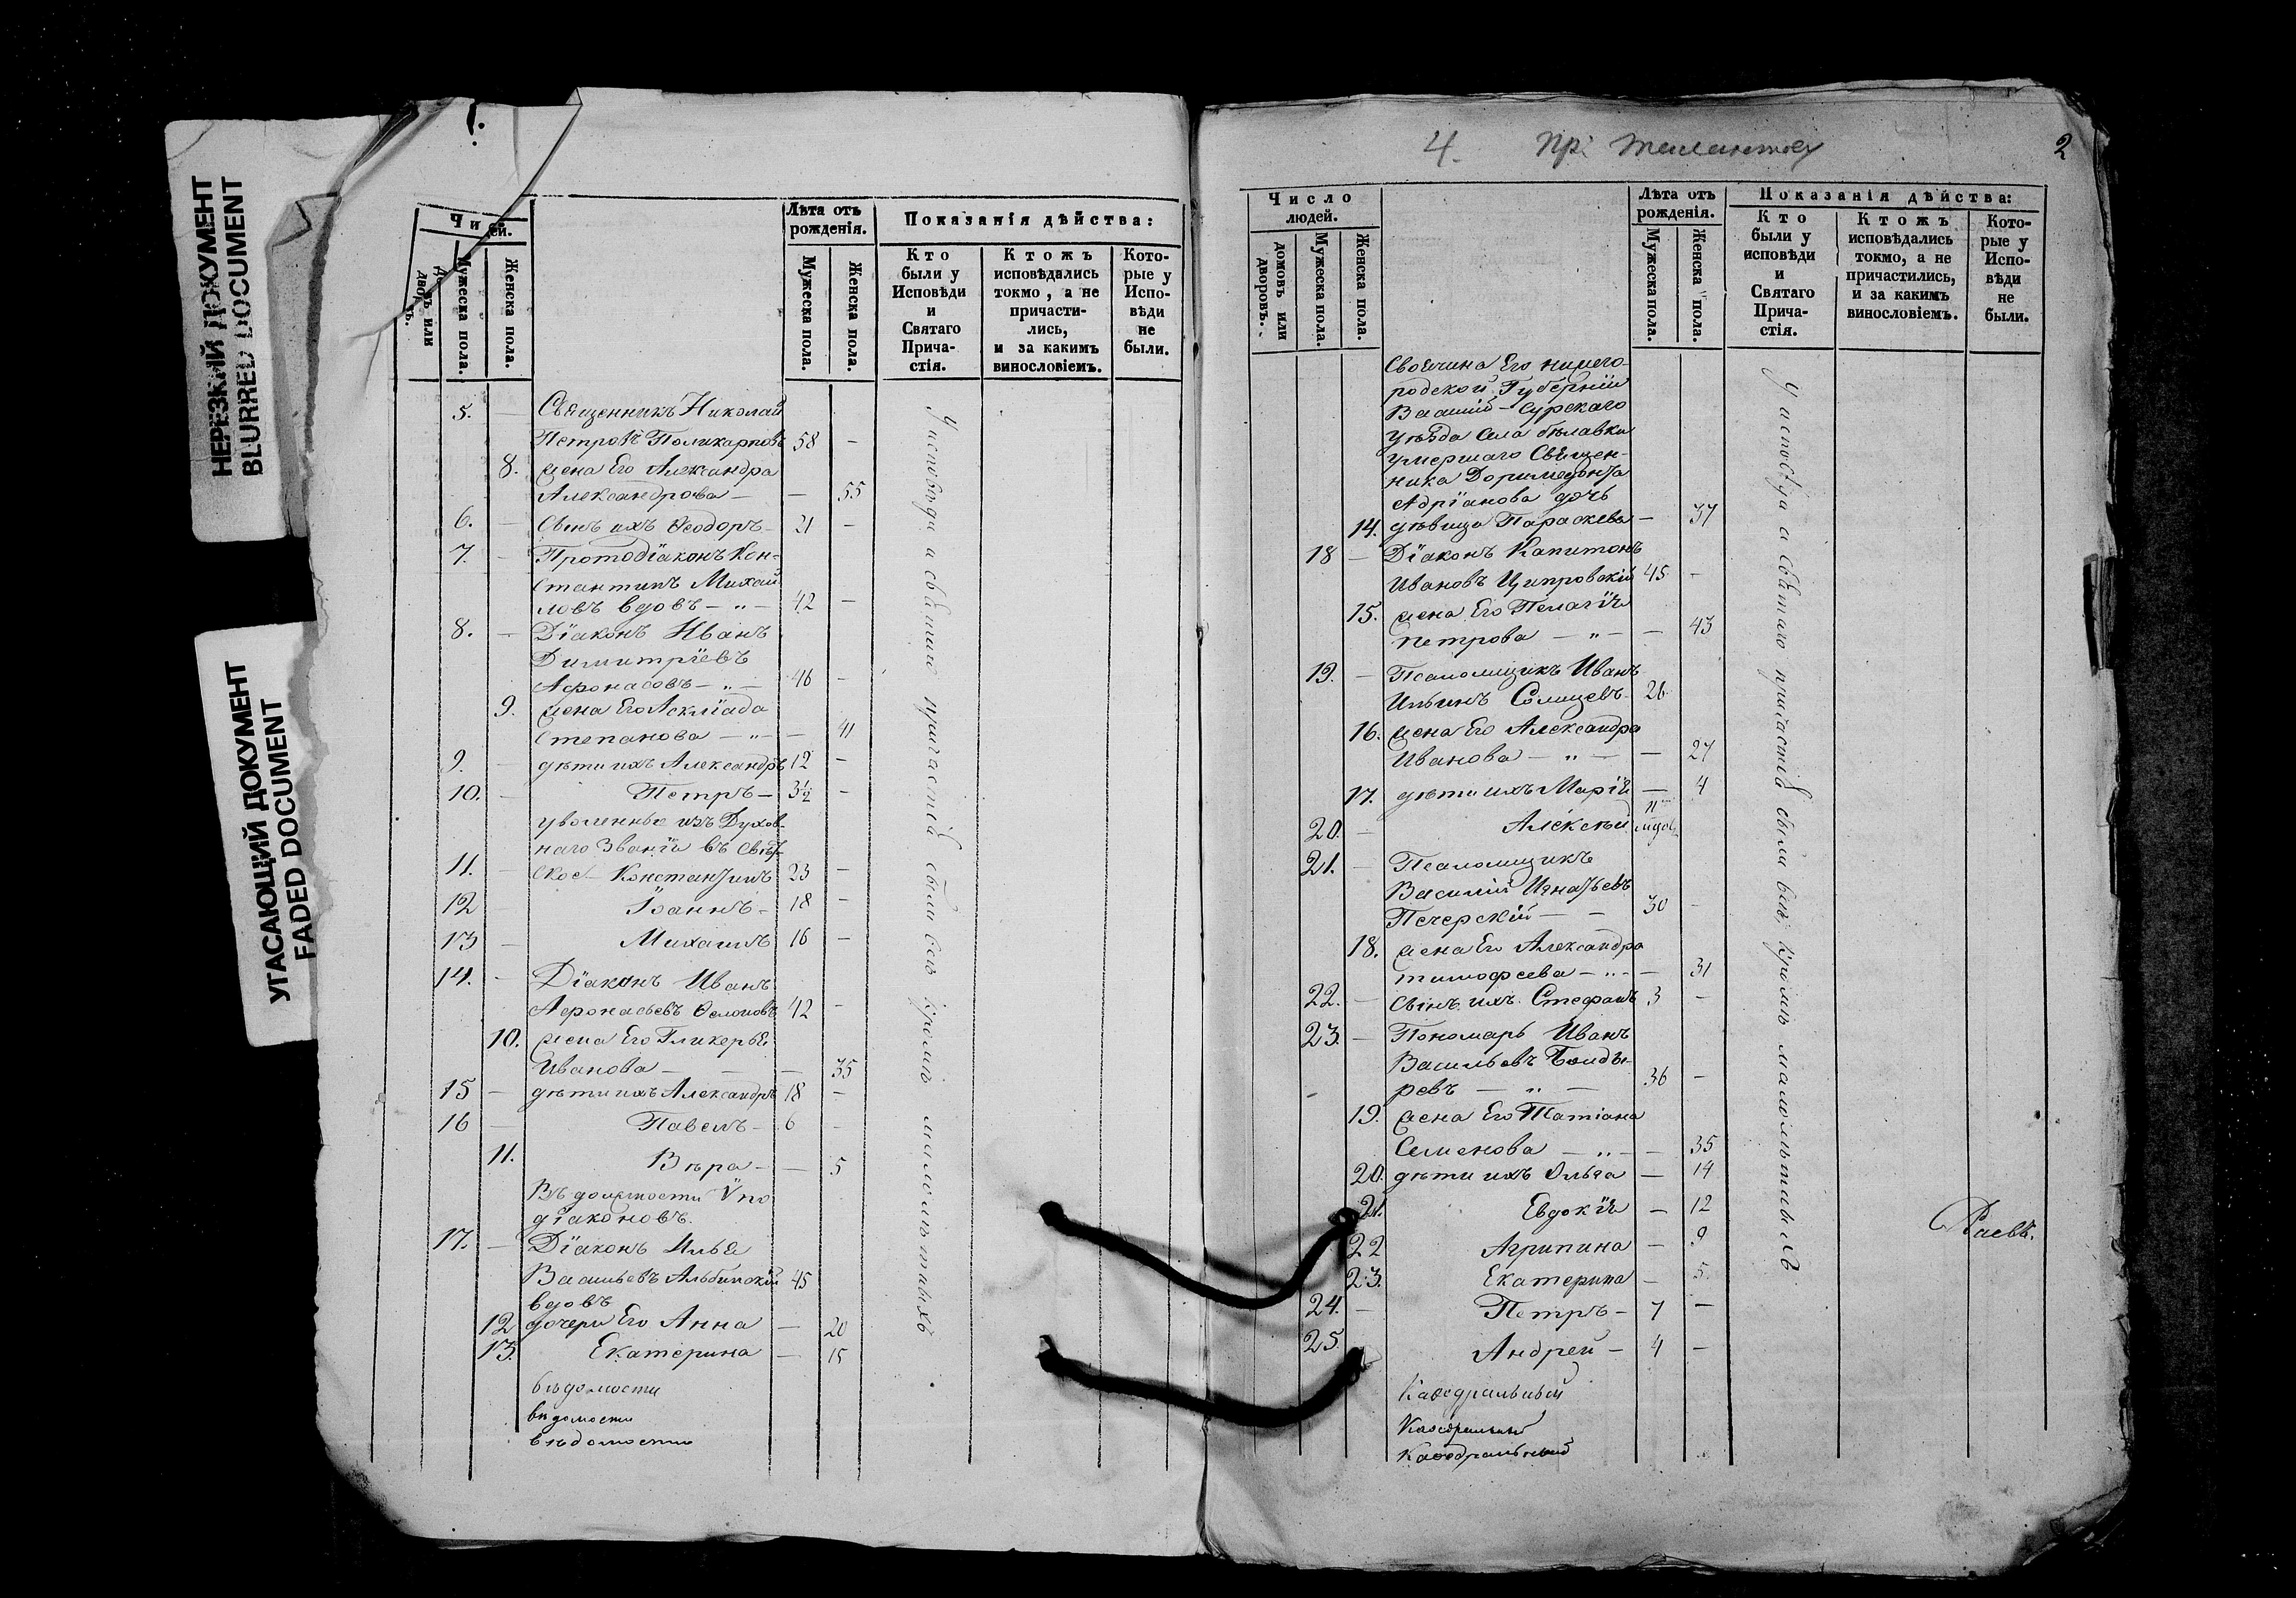 НЕРЕЗКИЙ ДОКУМЕНТ
BLURRED DOCUMENT
УГАСАЮЩИЙ ДОКУМЕНТ
FADED DOCUMENT
Лѣта отъ рожденія.
Показанія дѣйства:
Мужеска пола.
Женска пола.
Мужеска пола.
Женска пола.
Кто были у Исповѣди и Святаго Причастія.
Ктожъ исповѣдались токмо, а не причастились, и за какимъ винословіемъ.
Которые у Исповѣди не были.
5. — Священникъ Николай
Петровъ Поликарповъ 58 —
8. жена Его Александра
Александрова — — 55
6. — Сынъ ихъ Ѳеодоръ — 21 —
7. — Протодіаконъ Кон-
стантинъ Михай-
ловъ вдовъ — „ — 42 —
8. — Діаконъ Иванъ
Димитріевъ
Афонасовъ — „ — 46 —
9. жена Его Асклiада
Степанова — „ — — 41
9. — дѣти ихъ Александръ 12 —
10. — Петръ — 3½ —
уволенные изъ Духов-
наго Званія въ Свѣт-
11. — ское — Константинъ 23 —
12 — Іоаннъ — 18 —
13 — Михаилъ 16 —
14. — Діаконъ Иванъ
Афонасьевъ 42 —
10. жена Его Гликерья
Иванова — — — 35
15 — дѣти ихъ Александръ 18 —
16 — Павелъ — 6 —
11. Вѣра — — 5
Въ должности Ѵпо
діаконовъ.
17. — Діаконъ Илья
Васильевъ Альбинскій 45
вдовъ
12 дочери Его Анна — 20
13. Екатерина — 15
вѣдомости
вѣдомости
вѣдомости
У исповѣди и святаго причастія были всѣ кромѣ малолѣтныхъ
4. пр:
2
Число людей.
Лѣта отъ рожденія.
Показанія дѣйства:
домовъ или дворовъ.
Мужеска пола.
Женска пола.
Мужеска пола.
Женска пола.
Кто были у исповѣди и Святаго Причастія.
Ктожъ исповѣдались токмо, а не причастились, и за какимъ винословіемъ.
Которые у Исповѣди не были.
Своячина Его нижего-
родской Губерніи
Василь-Сурскаго
уѣзда села бѣлавки
умершаго Священ-
ника Доримедонта
Адріанова дочь
14. дѣвица Параскева — 37
18 — Діаконъ Капитонъ
Ивановъ Ципровскій 45 —
15. жена Его Пелагія
Петрова — „ — — 43
19. — Псаломщикъ Иванъ
Ильинъ Солнцевъ — 26
16. жена Его Александра
Иванова — „ — — 27
17. дѣти ихъ Марія — 4
20. — Алексѣй
21. — Псаломщикъ
Василій Игнатьевъ
Печерскій — — 30 —
18. жена Его Александра
тимофеева — „ — — 31
22. — Сынъ ихъ Стефанъ 3 —
23. — Пономарь Иванъ
Васильевъ Болды-
ревъ — „ — 36 —
19. жена Его Татіана
Семенова — „ — — 35
20. дѣти ихъ Ольга — 14
21. Евдокія — 12
22 Агрипина — 9
23. Екатерина — 5.
24. — Петръ — 7 —
25. Андрей — 4 —
Каѳедральный
Каѳедральный
Каѳедральный
У исповѣди и святаго причастія были всѣ кромѣ малолѣтныхъ
Раевъ.